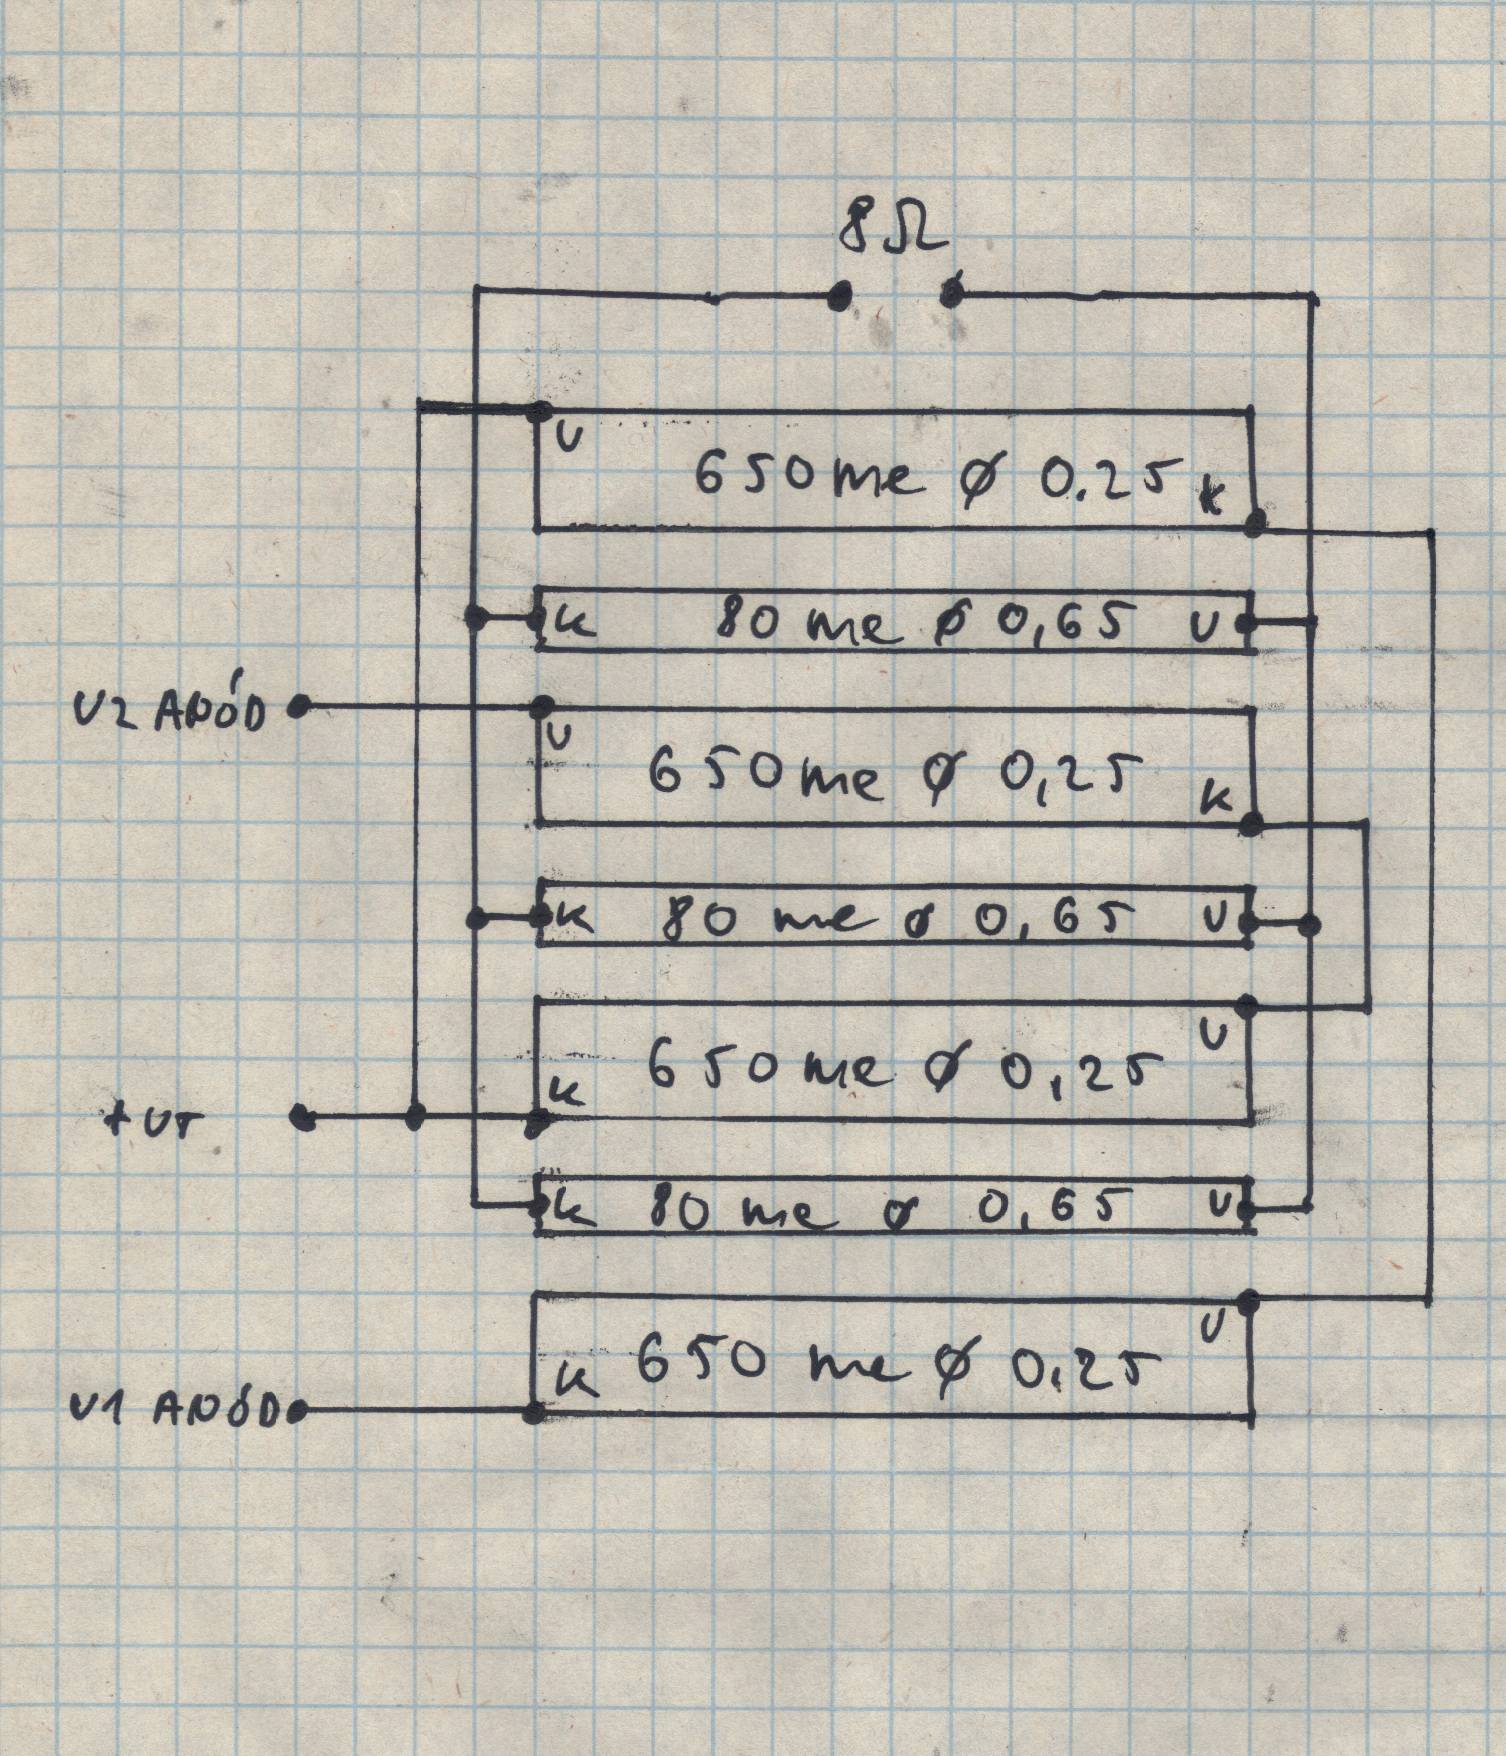 8Ω
V
650 me ø 0.25 k
k 80 me ø 0,65 V
V2 ANÓD
V
650 me ø 0,25
k
k 80 me ø 0,65 V
V
650 me ø 0,25
k
+UT
k 80 me ø 0,65 V
V
k 650 me ø 0,25
V1 ANÓD